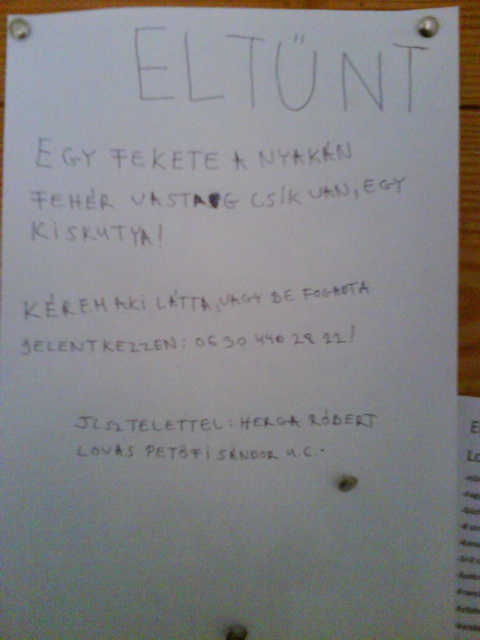 ELTŰNT
EGY FEKETE A NYAKÁN
FEHÉR VASTAG CSÍK VAN, EGY
KISKUTYA!
KÉREM AKI LÁTTA, VAGY BE FOGADTA
JELENTKEZZEN: 06 30 440 28 22!
TISZTELETTEL: HERGA RÓBERT
LOVAS PETŐFI SÁNDOR U.C.
E
Lo